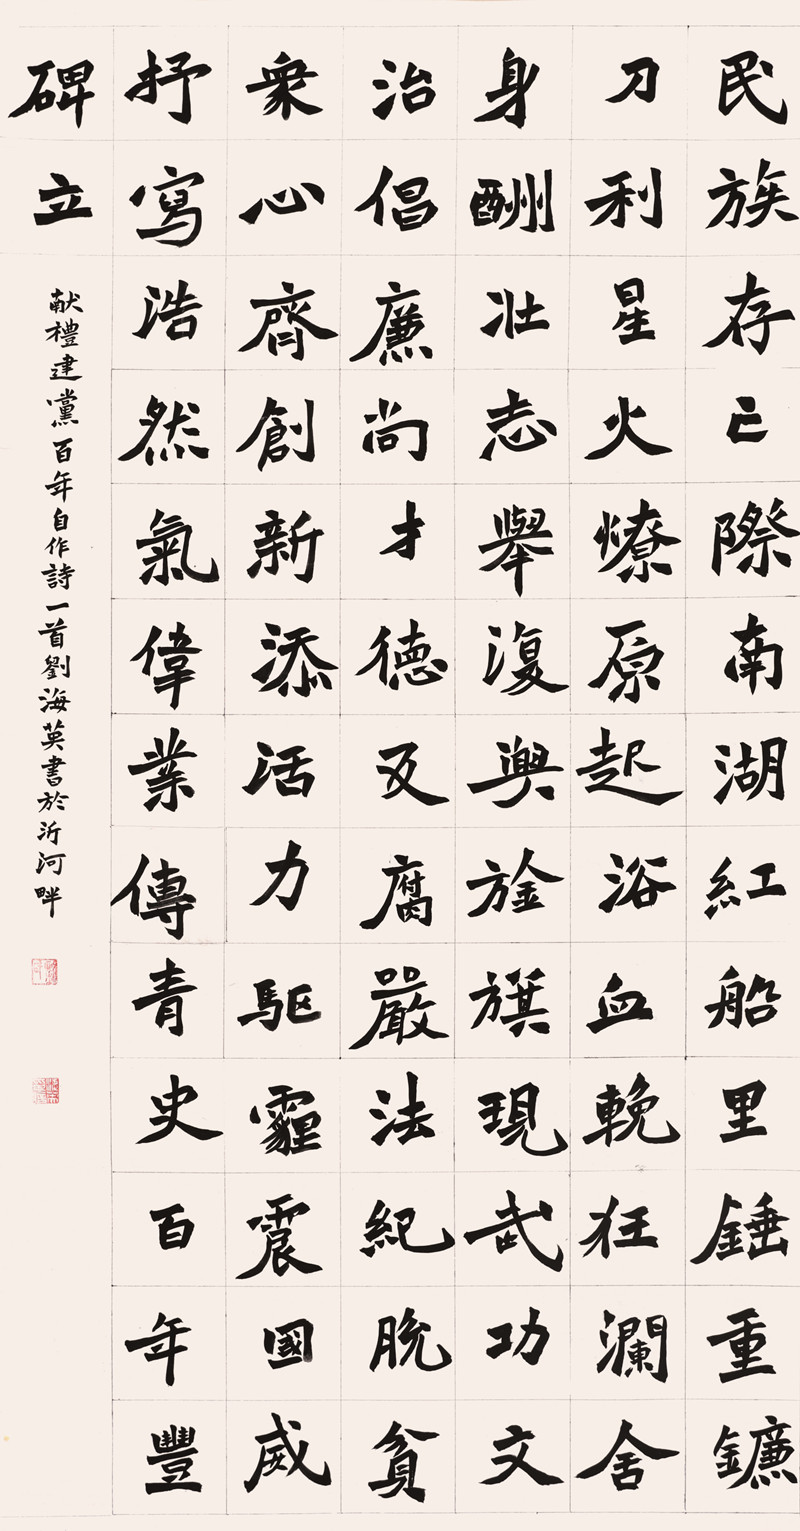 民族存亡際南湖紅船里錘重鐮
刀利星火燎原起浴血輓狂瀾舍
身酬壯志舉復興旌旗現武功文
治倡廉尚才德反腐嚴法紀脫貧
衆心齊創新添活力驅霾震國威
抒寫浩然氣偉業傳青史百年豐
碑立
献禮建黨百年自作詩一首劉海英書於沂河畔